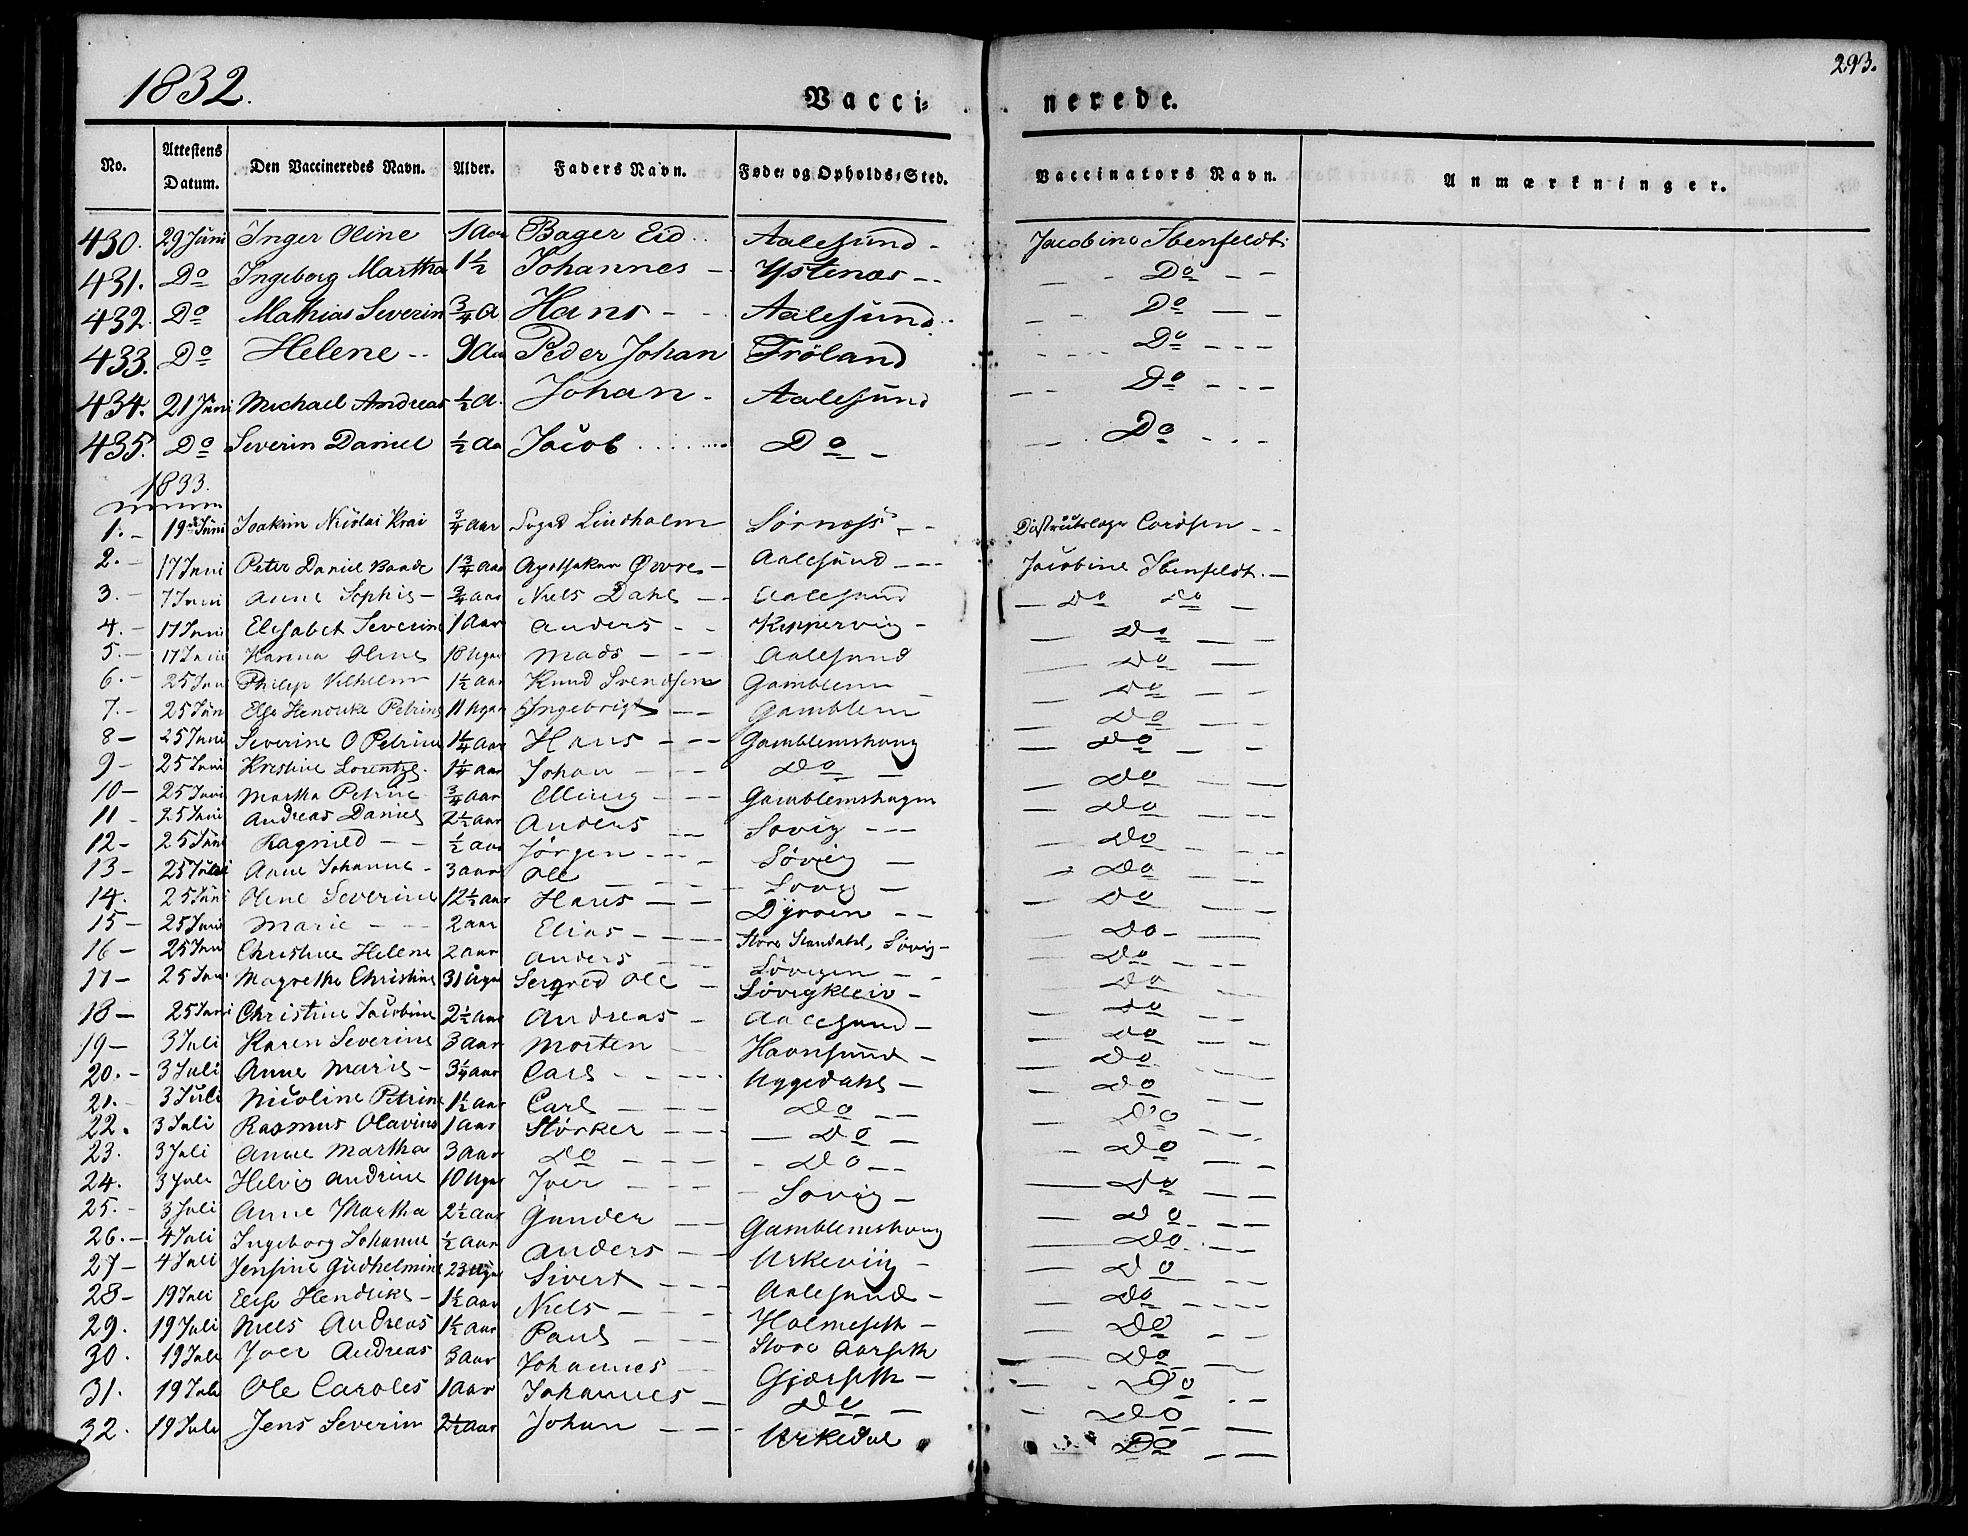 1832.
293.
Vacci=
nerede.
No. Attestens Datum. Den Vaccineredes Navn. Alder. Faders Navn. Føde= og Opholds=Sted. Vaccinators Navn. Anmærkninger.
430. 29 Juni Inger Oline 1 Aar Bager Eid Aalesund - Jacobine Ibenfeldt
431. Do Ingeborg Martha 1½ Johannes - Ystenæs - - - Do - -
432. Do Mathias Severin ¾ a Hans - Aalesund - Do - -
433. Do Helene - - 9 Aar Peder Johan Fröland - Do - - -
434. 21 Juni Michael Andreas ½ a. Johan - Aalesund - Do - - -
435. Do Severin Daniel ½ Aar Jacob Do - - Do - - -
1833.
1. - 19 Juni Joakim Nicolai Krai ¾ aar Lindholm Sörnæss - - Coridsen - -
2. - 17 Juni Peter Daniel Baade 1¾ aar Apotheker Øwre - Aalesund - - - Jacobine Ibenfeldt. -
3. - 7 Juni Anne Sophie - ¾ aar Niels Dahl - - Aalesund - Do Do -
4. - 17 Juni Elisabet Severine 1 Aar Anders - - Kippervig - - Do - -
5. - 17 Juni Hanna Oline 18 Uger Mads - - - Aalesund - Do -
6. - 25 Juni Philip Vilhelm 1½ aar Knud Svendsen Gamblem - - Do - -
7. - 25 Juni Else Hendrike Petrine 11 Uger Ingebrigt - - Gamblem - Do - -
8 - 25 Juni Severine O Petrine 1¼ aar Hans - - - Gamblemshoug - Do - -
9 - 25 Juni Kristine Lorentze. 1¼ aar Johan - - - Do - - Do - -
10 - 25 Juni Martha Petrine ¾ aar Elling - - - Gamblemshagen - Do - -
11 - 25 Juni Andreas Daniel 2½ aar Anders - - Sovig - - - - Do - -
12 - 25 Juni Ragnild - - ½ aar Jørgen - - - Søvig - - Do - -
13 - 25 Juni Anne Johanne - 3 aar Ole - - - - Sovig - - Do - -
14. 25 Juni Oline Severine 12½ aar Hans - - Dyrøen - - - Do - -
15 - 25 Juni Marie - - 2 aar Elias - - - Store Standahl, Søvig - Do -
16 - 25 Juni Christine Helene 2 aar Anders - - - Søvigen - - - Do - -
17 - 25 Juni Magrethe Christine 31 Uger Ole - Søvigkleiv - Do
18 - 25 Juni Christine Jacobine 2½ aar Andreas - Aalesund - - Do - -
19 - 3 Juli Karen Severine 3 aar Morten - Havnsund - - Do - -
20. - 3 Juli Anne Marie - 3¼ aar Carl - - - Uggedahl - - Do - -
21. - 3 Juli Nicoline Petrine 1½ aar Carl - - - Do - - - Do - -
22. 3 Juli Rasmus Olavius 1 aar Størker - - - - Do - - Do - -
23. 3 Juli Anne Martha 3 aar Do - - - - Do - - - Do - -
24. 3 Juli Helvig Andrine 10 Uger Iver - - - - Sovig - - Do - -
25. - 3 Juli Anne Martha 2½ aar Gunder - - Gamblemshoug - Do - -
26. - 4 Juli Ingeborg Johanne ½ aar Anders - - Urkeviig - - Do - -
27 - 4 Juli Jensine Gudhelmine 23 Uger Sivert - - - Aalesund - - Do - -
28 - 19 Juli Else Hendrike - 1½ aar Niels - - - Holmeseth - - Do - -
29. 19 Juli Niels Andreas 1½ aar Paul - - - Store Aarseth - Do - -
30. 19 Juli Iver Andreas 3 aar Johannes - - Gjærseth - - Do - -
31. 19 Juli Ole Caroles 1 aar Johannes - Do - - Do - -
32. 19 Juli Jens Severin 2½ aar Johan - - - Urkedal - Do - -